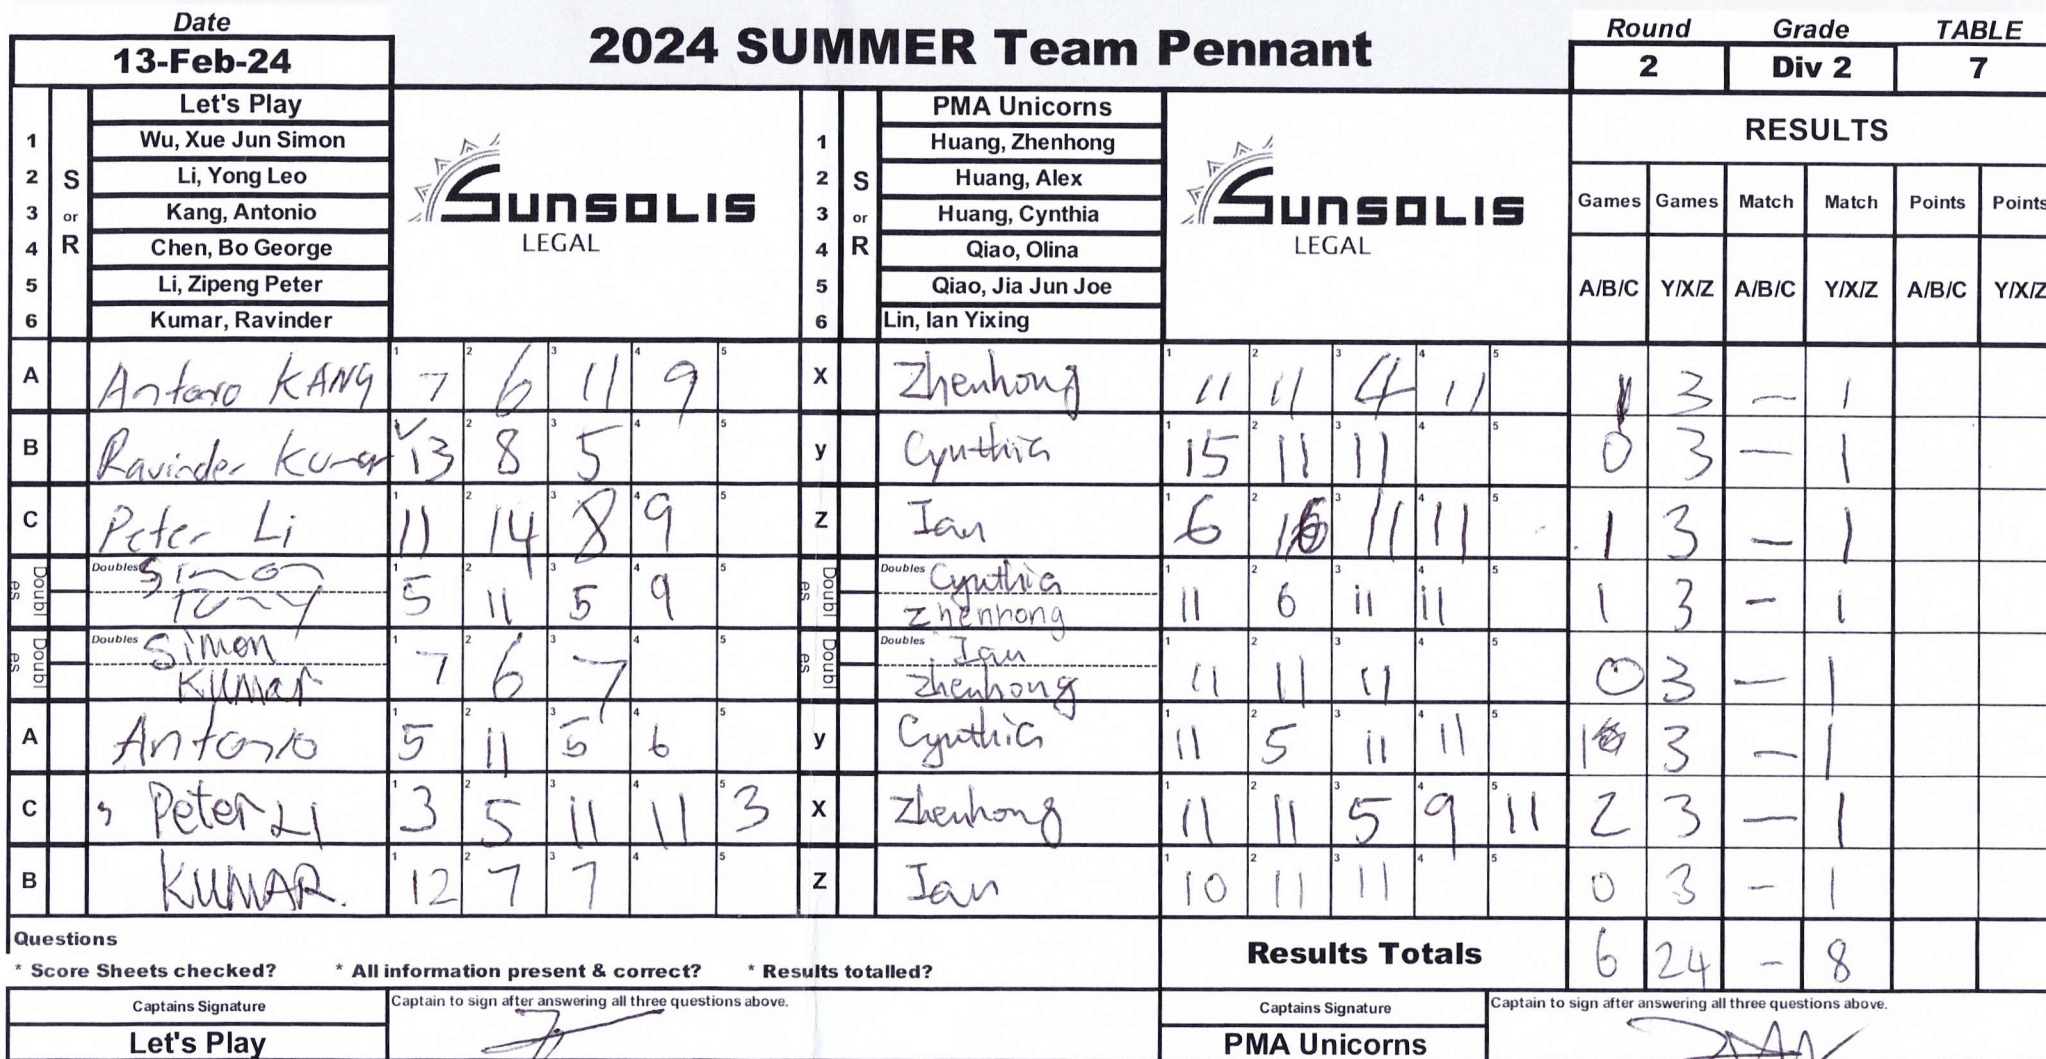 Date
13-Feb-24
2024 SUMMER Team Pennant
Round Grade TABLE
2 Div 2 7
Let's Play
1 Wu, Xue Jun Simon
2 Li, Yong Leo
3 Kang, Antonio
4 Chen, Bo George
5 Li, Zipeng Peter
6 Kumar, Ravinder
S or R
SUNSOLIS
LEGAL
PMA Unicorns
1 Huang, Zhenhong
2 Huang, Alex
3 Huang, Cynthia
4 Qiao, Olina
5 Qiao, Jia Jun Joe
6 Lin, Ian Yixing
S or R
SUNSOLIS
LEGAL
RESULTS
Games Games Match Match Points Points
A/B/C Y/X/Z A/B/C Y/X/Z A/B/C Y/X/Z
A Antonio KANG 7 6 11 9 X Zhenhong 11 11 4 11 1 3 – 1
B Ravinder Kumar 13 8 5 y Cynthia 15 11 11 0 3 – 1
C Peter Li 11 14 8 9 Z Ian 6 16 11 11 1 3 – 1
Doubles Simon 5 11 5 9 Doubles Cynthia 11 6 11 11 1 3 – 1
Tony Zhenhong
Doubles Simon 7 6 7 Doubles Ian 11 11 11 0 3 – 1
KUMAR Zhenhong
A Antonio 5 11 5 6 y Cynthia 11 5 11 11 1 3 – 1
C Peter Li 3 5 11 11 3 X Zhenhong 11 11 5 9 11 2 3 – 1
B KUMAR. 12 7 7 Z Ian 10 11 11 0 3 – 1
Questions
* Score Sheets checked? * All information present & correct? * Results totalled?
Results Totals 6 24 – 8
Captains Signature Captain to sign after answering all three questions above.
Let's Play
Captains Signature Captain to sign after answering all three questions above.
PMA Unicorns